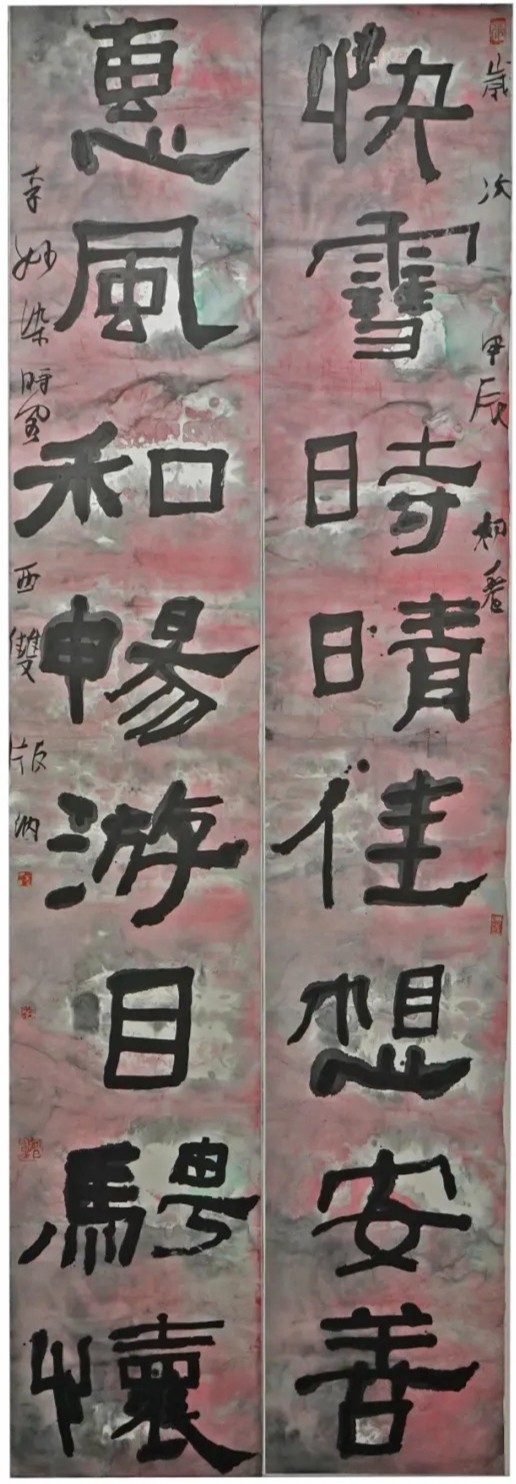 歲次甲辰初春
快雪時晴佳想安善
惠風和暢游目騁懷
李妙染時 西雙版納